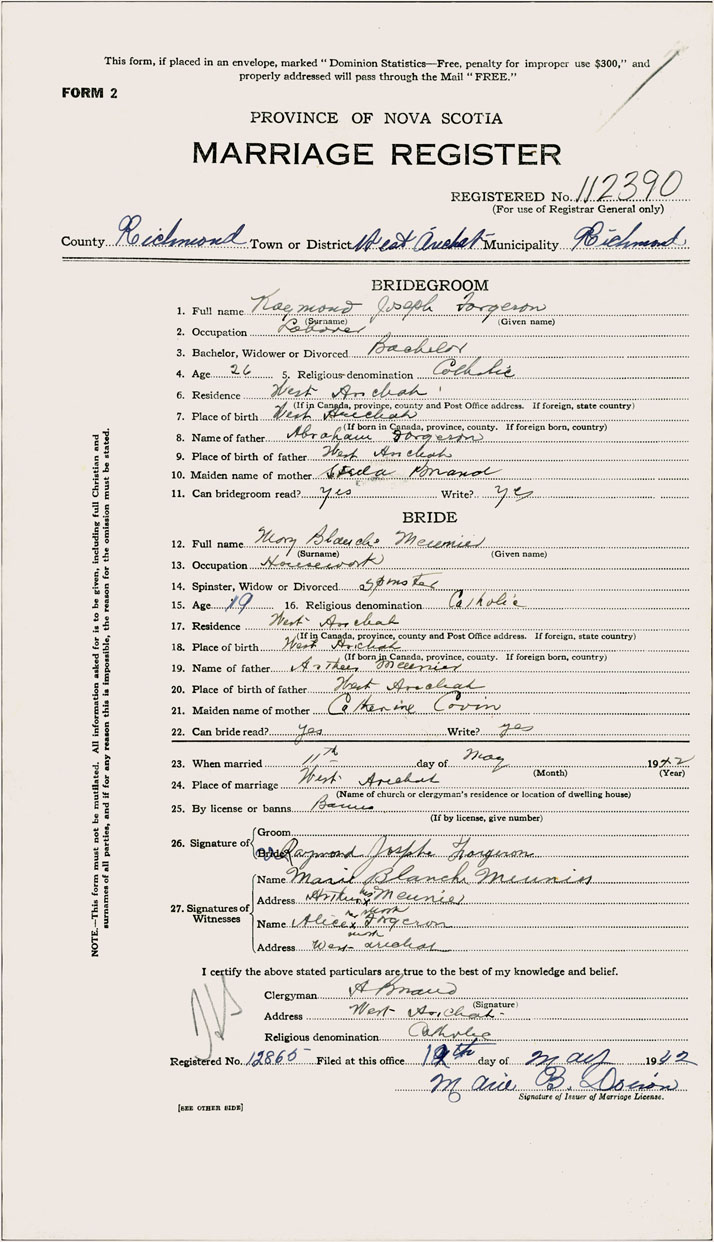 This form, if placed in an envelope, marked "Dominion Statistics—Free, penalty for improper use $300," and
properly addressed will pass through the Mail "FREE."
FORM 2
PROVINCE OF NOVA SCOTIA
MARRIAGE REGISTER
REGISTERED No. 112390
(For use of Registrar General only)
County Richmond Town or District West Arichat Municipality Richmond
BRIDEGROOM
1. Full name Raymond Joseph Forgeron
(Surname) (Given name)
2. Occupation Laborer
3. Bachelor, Widower or Divorced Bachelor
4. Age 26 5. Religious denomination Catholic
6. Residence West Arichat
(If in Canada, province, county and Post Office address. If foreign, state country)
7. Place of birth West Arichat
(If born in Canada, province, county. If foreign born, country)
8. Name of father Abraham Forgeron
9. Place of birth of father West Arichat
10. Maiden name of mother
11. Can bridegroom read? yes Write? yes
BRIDE
12. Full name Mary Blanche Meunier
(Surname) (Given name)
13. Occupation Housework
14. Spinster, Widow or Divorced Spinster
15. Age 19 16. Religious denomination Catholic
17. Residence West Arichat
(If in Canada, province, county and Post Office address. If foreign, state country)
18. Place of birth West Arichat
(If born in Canada, province, county. If foreign born, country)
19. Name of father Arthur Meunier
20. Place of birth of father West Arichat
21. Maiden name of mother Catherine Covin
22. Can bride read? yes Write? yes
23. When married 11th day of May 1942
(Month) (Year)
24. Place of marriage West Arichat
(Name of church or clergyman's residence or location of dwelling house)
25. By license or banns Banns
(If by license, give number)
26. Signature of
Groom
Bride Raymond Joseph Forgeron
27. Signatures of Witnesses
Name Marie Blanche Meunier
Address Arthur his x mark Meunier
Name Alice her x mark Forgeron
Address West Arichat
I certify the above stated particulars are true to the best of my knowledge and belief.
Clergyman A Briand
(Signature)
Address West Arichat
Religious denomination Catholic
Registered No. 12865 Filed at this office day of May 1942
Marie B. Doiron
Signature of Issuer of Marriage License.
[SEE OTHER SIDE]
NOTE.—This form must not be mutilated. All information asked for is to be given, including full Christian and
surnames of all parties, and if for any reason this is impossible, the reason for the omission must be stated.